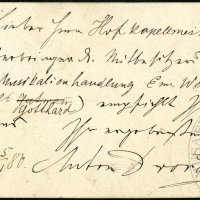 Lieber Herr Hofkapellmeis
Überbringer d. Mitbesitzer
Musikalienhandlung Em. We
Gutmann
(Gotthard) empfiehlt
Ihr ergebenster
5/ 80. Anton Dvor